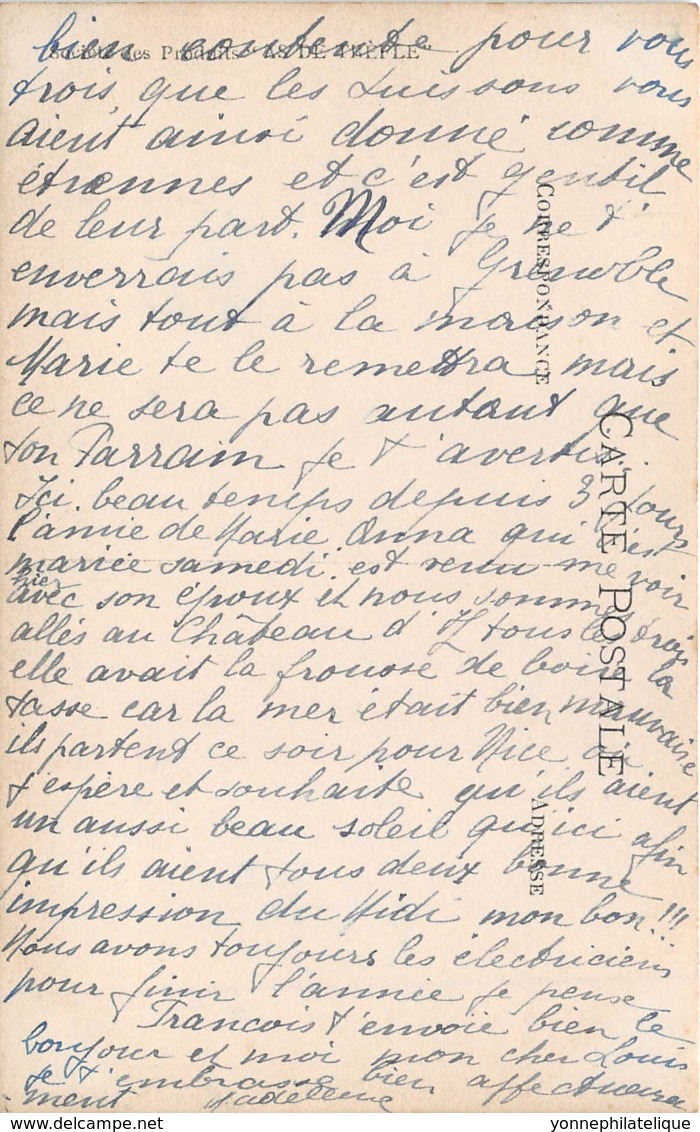 bien contente pour vous
Société des Produits "AS DE TRÈFLE"
trois que les Luissons vous
aient ainsi donné comme
étrennes et c'est gentil
de leur part. Moi je ne t'
enverrais pas à Grenoble
mais tout à la maison et
Marie te le remettra mais
ce ne sera pas autant que
ton Parrain je t'avertis.
Ici beau temps depuis 3 jours
l'amie de Marie Anna qui s'est
mariée samedi est venu me voir
hier
avec son époux et nous sommes
allés au Château d'If tous les trois
elle avait la frousse de boire la
tasse car la mer était bien mauvaise
ils partent ce soir pour Nice où
j'espère et souhaite qu'ils aient
un aussi beau soleil qu'ici afin
qu'ils aient tous deux bonne
impression du Midi mon bon!!!
Nous avons toujours les électriciens
pour finir l'année je pense
Francois t'envoie bien le
bonjour et moi mon cher Louis
je t'embrasse bien affectueuse
ment Madeleine
CORRESPONDANCE
CARTE POSTALE
ADRESSE
yonnephilatelique